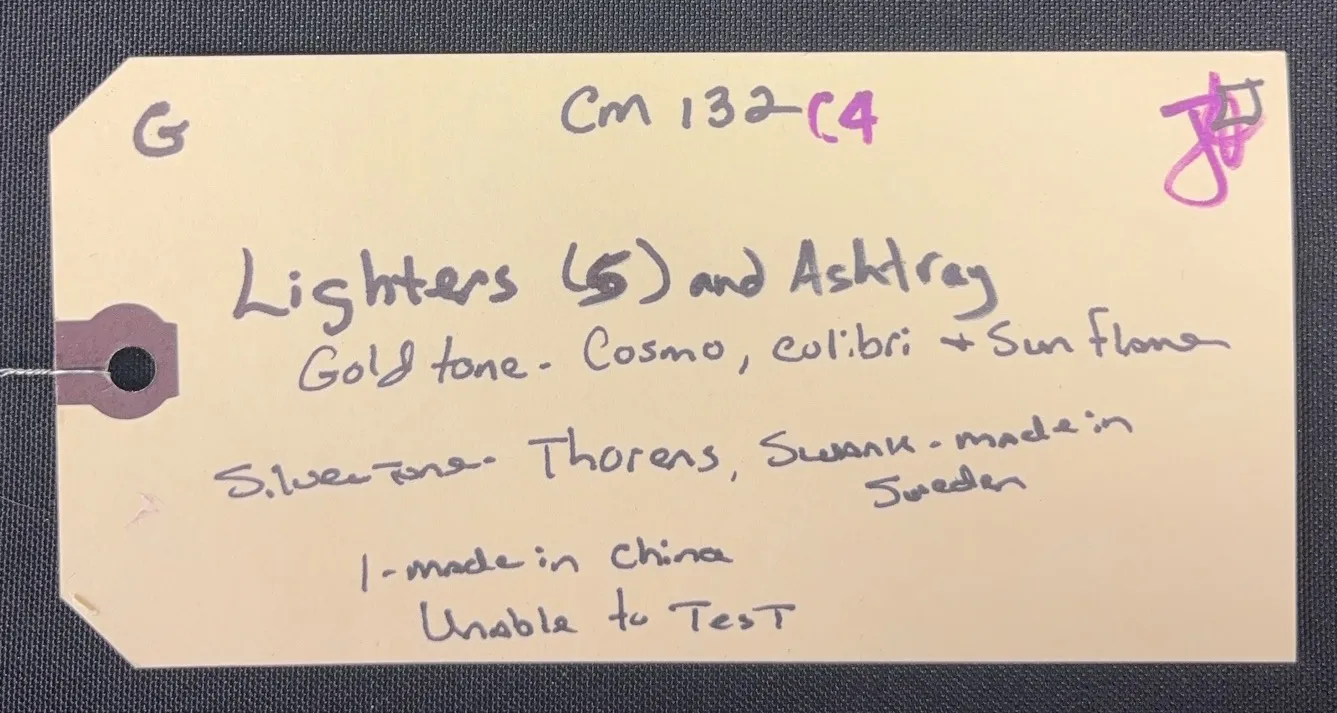 G
Cm 132 C4
Lighters (5) and Ashtray
Gold tone - Cosmo, colibri + Sun flame
Silver Tone - Thorens, Swank - made in
Sweden
1 - made in China
Unable to Test